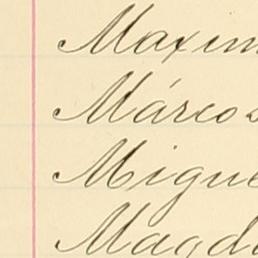 Maxim
Márcos
Migue
Magda